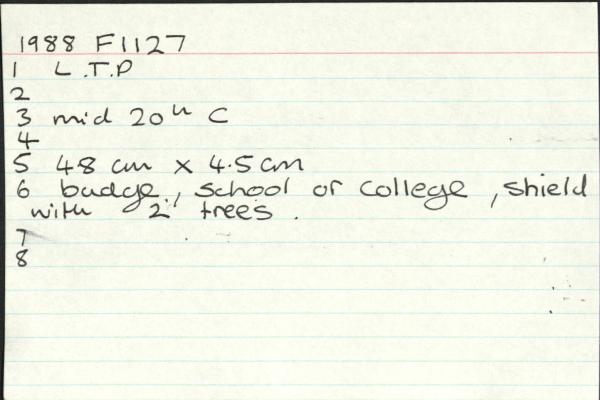 1988 F1127
1 L.T.P
2
3 mid 20th C
4
5 48 cm x 4.5cm
6 badge, school or college, shield
with 2 trees.
7
8